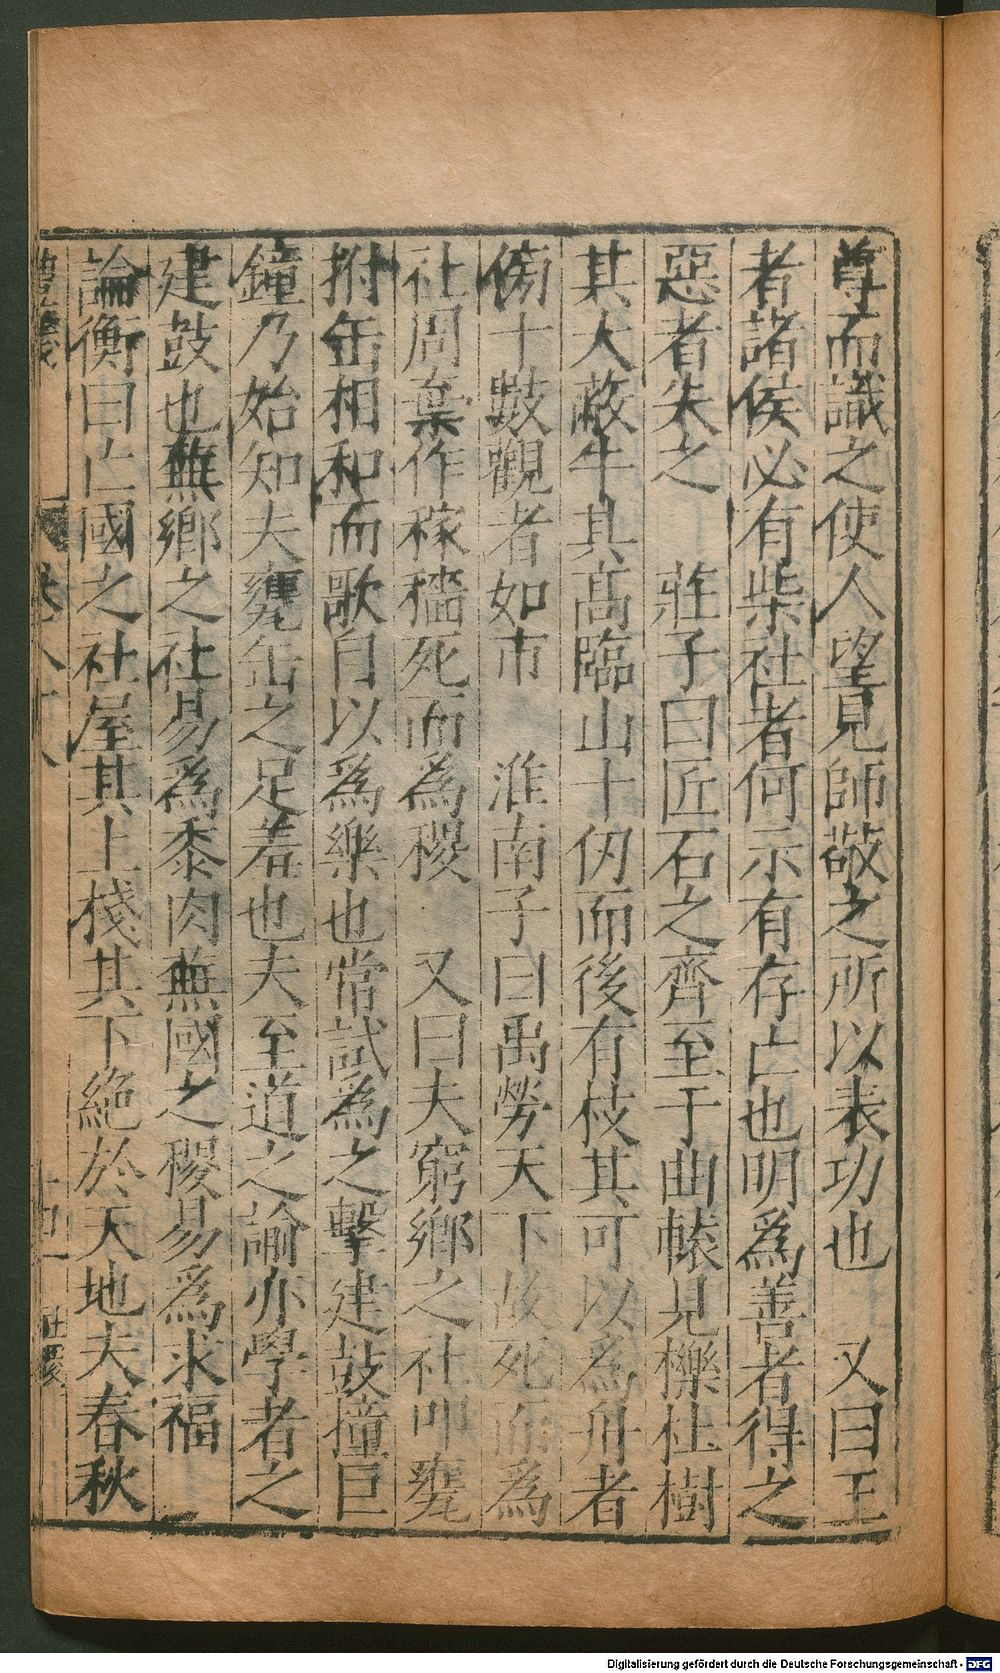 尊而識之使人望見師敬之所以表功也　又曰王
者諸侯必有柴社者何示有存亡也明爲善者得之
惡者失之　莊子曰匠石之齊至于曲轅見櫟杜樹
其大蔽牛其高臨山十仞而後有枝其可以為舟者
傍十數觀者如市　淮南子曰禹勞天下故死而為
社周棄作稼穡死而為稷　又曰夫窮鄉之社叩甕
拊缶相和而歌自以爲樂也常試爲之擊建鼓撞巨
鐘乃始知夫甕缶之足羞也夫至道之論亦學者之
建鼓也無鄉之社易爲黍肉無國之稷易爲求福
論衡曰亡國之社屋其上棧其下絶於天地夫春秋
十四
社稷
Digitalisierung gefördert durch die Deutsche Forschungsgemeinschaft - DFG